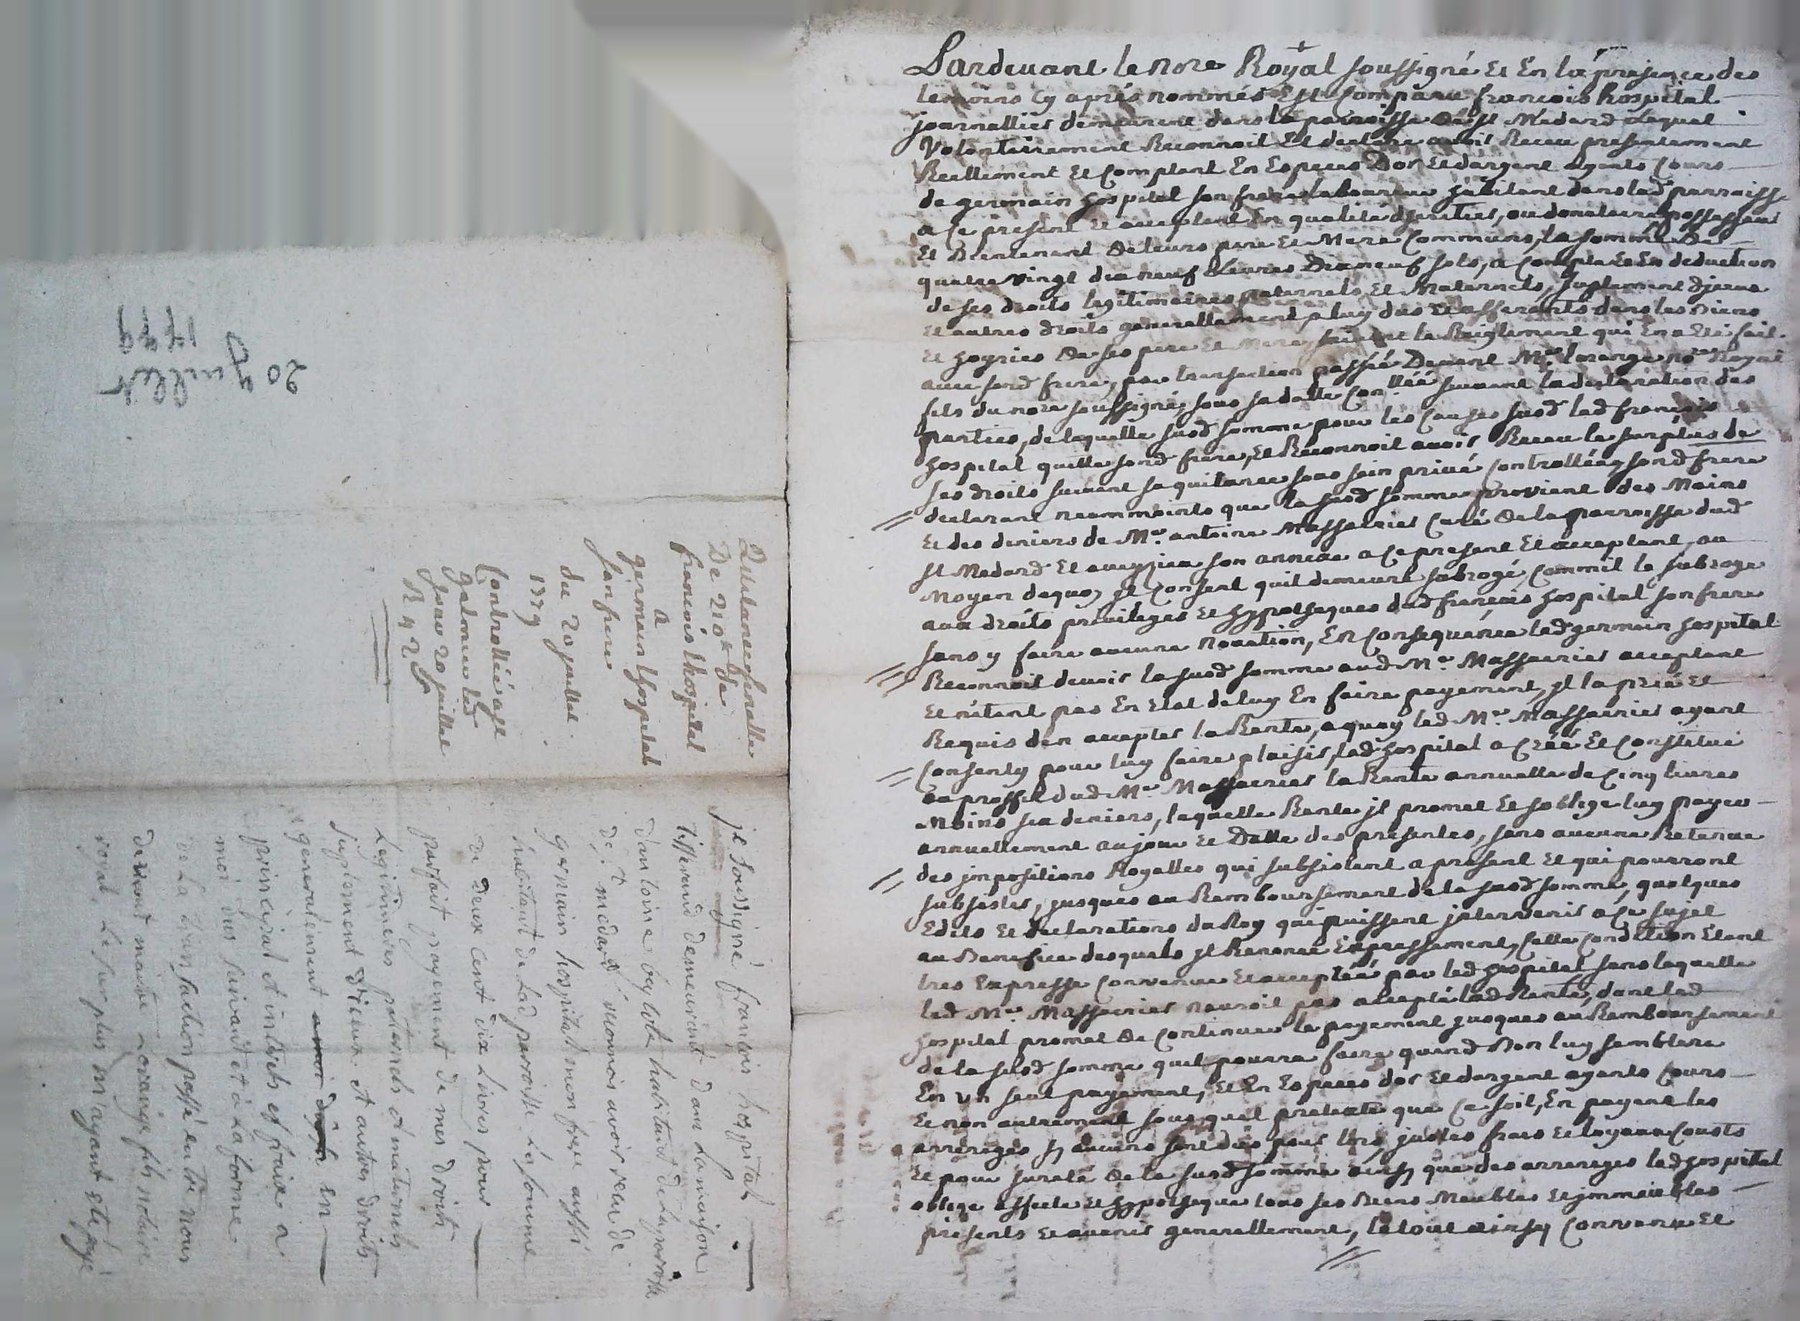 20 Juillet
1779
Quitance finalle
De 210 lt de
francois hospital
a
germain hospital
son frere
du 20 juillet
1779
Controllée a
galmiera led
jour 20 juillet
R 42 s
je soussigné françois hospital
demeurant dans la maison
d'antoine habitant de la paroisse
de st medard reconnois avoir reçu de
germain hospital mon frere aussi
habitant de lad paroisse la somme
de deux cent dix livres pour
parfait payement de mes droits
Legitimeres paternels et maternels
suplement d'iceux et autres droits
generalement en
principal et interets et fraix a
moi dus suivant et a la forme
de la transaction passé entre nous
devant maitre fils notaire
royal. Le surplus m'ayant eté payé
Pardevant le nore Royal soussigné Et En la presence des
temoins cy aprés nommés Est Comparu françois hospital
journallier demeurent dans la paroisse de St Medard Lequel
Volonterrement Reconnoit Et declare avoir Receu presentement
Reellement Et Comptant En Especes Dor Et d'argent ayants Cours
de germain hospital son frere laboureur habitant dans lad parroisse
a Ce present Et acceptant En qualité d'heritier, ou donataire possesseur
Et Bientenant De leurs pere Et Mere Communs, la somme De
quatre vingt dix neuf Livres Dixneuf sols, a Compte Et En deduction
de ses droits legitimaires paternels Et Maternels, suplement d'jceux
Et autres droits generallement a luy dus Et afferants dans les Biens
Et hoyries De ses pere Et Mere, suivant le Reiglement qui En a Eté fait
avec sond frere, par transaction passée Devant Me nore Royal
fils du nore soussigné, sous sa datte Con.lleé suivant la declaration des
parties, de laquelle susd somme pour les Causes susd led françois
hospital quitte sond frere, Et Reconnoit avoir Receu le surplus de
ses droits suivant sa quitance sous sein privé Controllée, sond frere
declarant neammoints que la susd somme provient des Mains
Et des deniers de Me antoine Massacrier Curé De la parroisse dud
St Medard Et son annexe a Ce present Et acceptant, au
Moyen dequoy jl Consent quil demeure subrogé, Comm'il le subroge
aux droits privileges Et hypotheques dud françois hospital son frere
sans y faire aucune novation, En Consequence led germain hospital
Reconnoit devoir la susd somme aud Me Massacrier acceptant
Et n'étant pas En Etat de luy En faire payement, jl la prié Et
Requis d'en accepter la Rente, a quoy led Me Massacrier ayant
Consenty pour luy faire plaisir, led hospital a Créé Et Constitué
au proffit dud Me Massacrier la Rente annuelle de Cinq livres
Moins six deniers, laquelle Rente jl promet Et soblige luy payer
annuellement au jour Et Datte des presentes, sans aucune Retenue
des jmpositions Royalles qui subsistent a present Et qui pourront
subsister, jusques au Remboursement de la susd somme, quelques
Edits Et declarations du Roy qui puissent jntervenir a Ce sujet
au Benefice desquels jl Renonce Expressement, Cette Condition Etant
tres Expresse Convenue Et acceptée par led hospital sans laquelle
led Me Massacrier nauroit pas accepté lad Rente, dont led
hospital promet De Continuer le payement jusques au Remboursement
de la susd somme quil pourra faire quand Bon luy semblera
En un seul payement, Et En Especes dor Et dargent ayants Cours
Et non autrement sous quel pretexte que Ce soit, En payant les
arrerages sy aucuns sont dus pour lors, justes frais Et loyaux Cousts
Et pour sureté De la susd somme ainsy que des arrerages led hospital
oblige affecte Et hypotheque tous ses Biens Meubles Et jmmeubles
presents Et avenir generallement, le tout ainsy Convenu Et